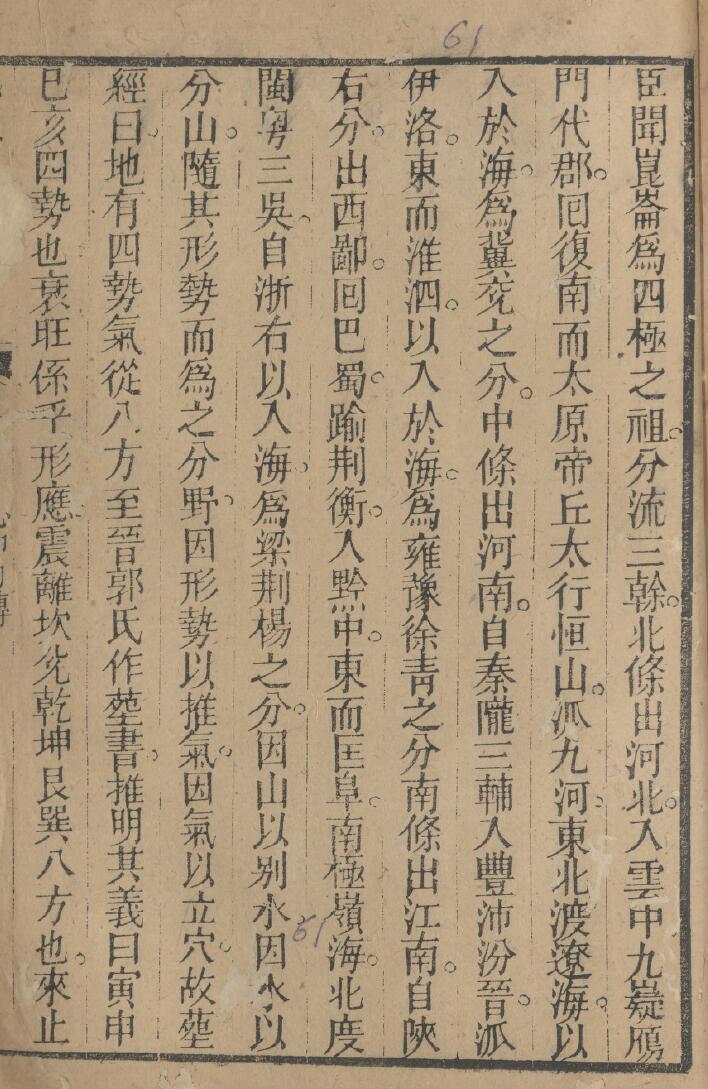 61
臣聞崑崙爲四極之祖。分流三榦。北條出河北。入雲中九嶷鴈
門代郡。回復南而太原帝丘太行恒山。派九河。東北渡遼海。以
入於海。爲冀兗之分。中條出河南。自秦隴三輔入豐沛汾晉。派
伊洛。東而淮泗。以入於海。爲雍豫徐青之分南條出江南。自陝
右分。出西鄙。回巴蜀。踰荆衡。入黔中。東而匡阜。南極嶺海。北度
閩粤三吳。自浙右以入海。爲梁荆楊之分。因山以别水因水以
分山。隨其形勢而爲之分野。因形勢以推氣。因氣以立穴。故塟
經曰。地有四勢氣從八方至晉郭氏作塟書。推明其義曰寅申
巳亥四勢也衰旺係乎形應。震離坎兊乾坤艮巽八方也。來止
61